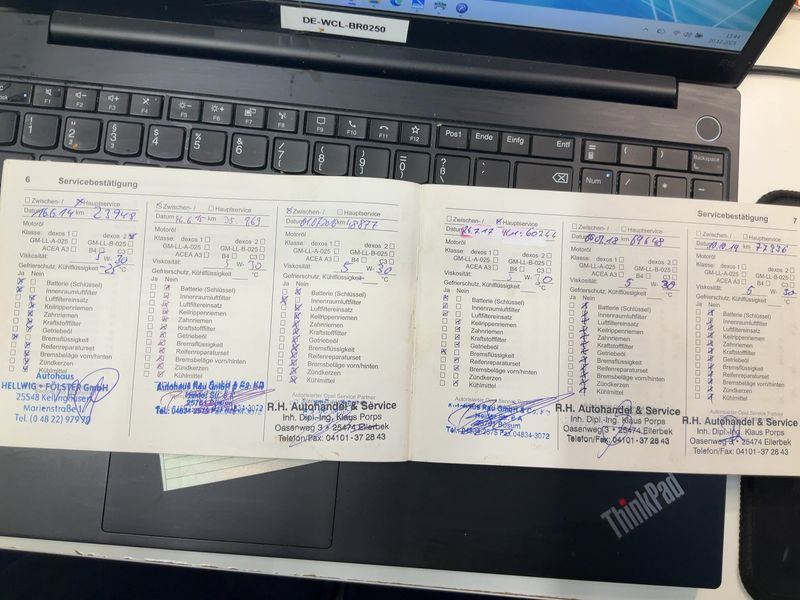 DE-WCL-BR0250
13:44
20.12.2023
6 Servicebestätigung
Zwischen- / Hauptservice
Datum 16.6.14 km 23948
Motoröl
Klasse: dexos 1 dexos 2
GM-LL-A-025 GM-LL-B-025
ACEA A3 B4 C3
Viskosität: 5 W- 30
Gefrierschutz, Kühlflüssigkeit -25 °C
Ja Nein
Batterie (Schlüssel)
Innenraumluftfilter
Luftfiltereinsatz
Keilrippenriemen
Zahnriemen
Kraftstofffilter
Getriebeöl
Bremsflüssigkeit
Reifenreparaturset
Bremsbeläge vorn/hinten
Zündkerzen
Kühlmittel
Autohaus
HELLWIG + FÖLSTER GmbH
25548 Kellinghusen
Marienstraße
Tel. (0 48 22)
Zwischen- / Hauptservice
Datum km
Motoröl
Klasse: dexos 1 dexos 2
GM-LL-A-025 GM-LL-B-025
ACEA A3 B4 C3
Viskosität: 5 W- 30
Gefrierschutz, Kühlflüssigkeit °C
Ja Nein
Batterie (Schlüssel)
Innenraumluftfilter
Luftfiltereinsatz
Keilrippenriemen
Zahnriemen
Kraftstofffilter
Getriebeöl
Bremsflüssigkeit
Reifenreparaturset
Bremsbeläge vorn/hinten
Zündkerzen
Kühlmittel
Autohaus Rau GmbH & Co. KG
25761 Büsum
Tel.: 04834-2575 Fax.04834-3072
Zwischen- / Hauptservice
Datum km 48877
Motoröl
Klasse: dexos 1 dexos 2
GM-LL-A-025 GM-LL-B-025
ACEA A3 B4 C3
Viskosität: 5 W- 30
Gefrierschutz, Kühlflüssigkeit °C
Ja Nein
Batterie (Schlüssel)
Innenraumluftfilter
Luftfiltereinsatz
Keilrippenriemen
Zahnriemen
Kraftstofffilter
Getriebeöl
Bremsflüssigkeit
Reifenreparaturset
Bremsbeläge vorn/hinten
Zündkerzen
Kühlmittel
Autorisierter Opel Service Partner
R.H. Autohandel & Service
Inh. Dipl.-Ing. Klaus Porps
Oasenweg 3 • 25474 Ellerbek
Telefon/Fax: 04101 - 37 28 43
Servicebestätigung 7
Zwischen- / Hauptservice
km 60244
Motoröl
Klasse: dexos 1 dexos 2
GM-LL-A-025 GM-LL-B-025
ACEA A3 B4 C3
Viskosität: 5 W- 30
Gefrierschutz, Kühlflüssigkeit °C
Ja Nein
Batterie (Schlüssel)
Innenraumluftfilter
Luftfiltereinsatz
Keilrippenriemen
Zahnriemen
Kraftstofffilter
Getriebeöl
Bremsflüssigkeit
Reifenreparaturset
Bremsbeläge vorn/hinten
Zündkerzen
Kühlmittel
Autohaus Rau GmbH & Co.
Büsum
Tel.: 04834-2575 Fax.04834-3072
Zwischen- / Hauptservice
Datum km 69648
Motoröl
Klasse: dexos 1 dexos 2
GM-LL-A-025 GM-LL-B-025
ACEA A3 B4 C3
Viskosität: 5 W- 30
Gefrierschutz, Kühlflüssigkeit °C
Ja Nein
Batterie (Schlüssel)
Innenraumluftfilter
Luftfiltereinsatz
Keilrippenriemen
Zahnriemen
Kraftstofffilter
Getriebeöl
Bremsflüssigkeit
Reifenreparaturset
Bremsbeläge vorn/hinten
Zündkerzen
Kühlmittel
Autorisierter Opel Service Partner
R.H. Autohandel & Service
Inh. Dipl.-Ing. Klaus Porps
Oasenweg 3 • 25474 Ellerbek
Telefon/Fax: 04101 - 37 28 43
Zwischen- / Hauptservice
Datum 10.10.19 km 77996
Motoröl
Klasse: dexos 1 dexos 2
GM-LL-A-025 GM-LL-B-025
ACEA A3 B4 C3
Viskosität: 5 W- 30
Gefrierschutz, Kühlflüssigkeit °C
Ja Nein
Batterie (Schlüssel)
Innenraumluftfilter
Luftfiltereinsatz
Keilrippenriemen
Zahnriemen
Kraftstofffilter
Getriebeöl
Bremsflüssigkeit
Reifenreparaturset
Bremsbeläge vorn/hinten
Zündkerzen
Kühlmittel
R.H. Autohandel & Service
Inh. Dipl.-Ing. Klaus Porps
Oasenweg 3 • 25474 Ellerbek
Telefon/Fax: 04101 - 37 28 43
ThinkPad